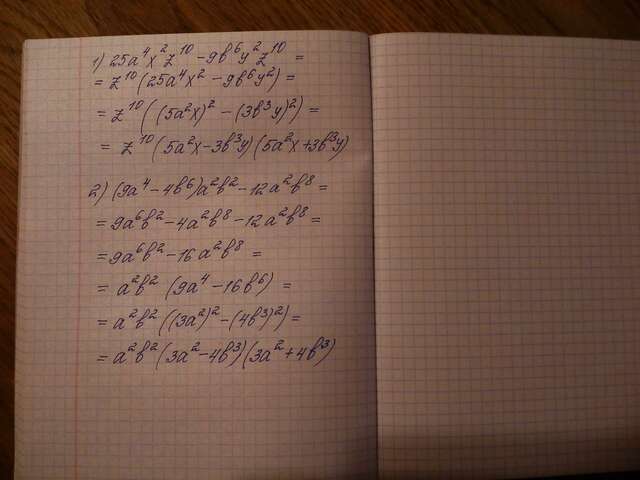 1) 25a⁴x²z¹⁰ - 9b⁶y²z¹⁰ =
= z¹⁰(25a⁴x² - 9b⁶y²) =
= z¹⁰((5a²x)² - (3b³y)²) =
= z¹⁰(5a²x - 3b³y)(5a²x + 3b³y)
2) (9a⁴ - 4b⁶)a²b² - 12a²b⁸ =
= 9a⁶b² - 4a²b⁸ - 12a²b⁸ =
= 9a⁶b² - 16a²b⁸ =
= a²b² (9a⁴ - 16b⁶) =
= a²b² ((3a²)² - (4b³)²) =
= a²b² (3a² - 4b³)(3a² + 4b³)